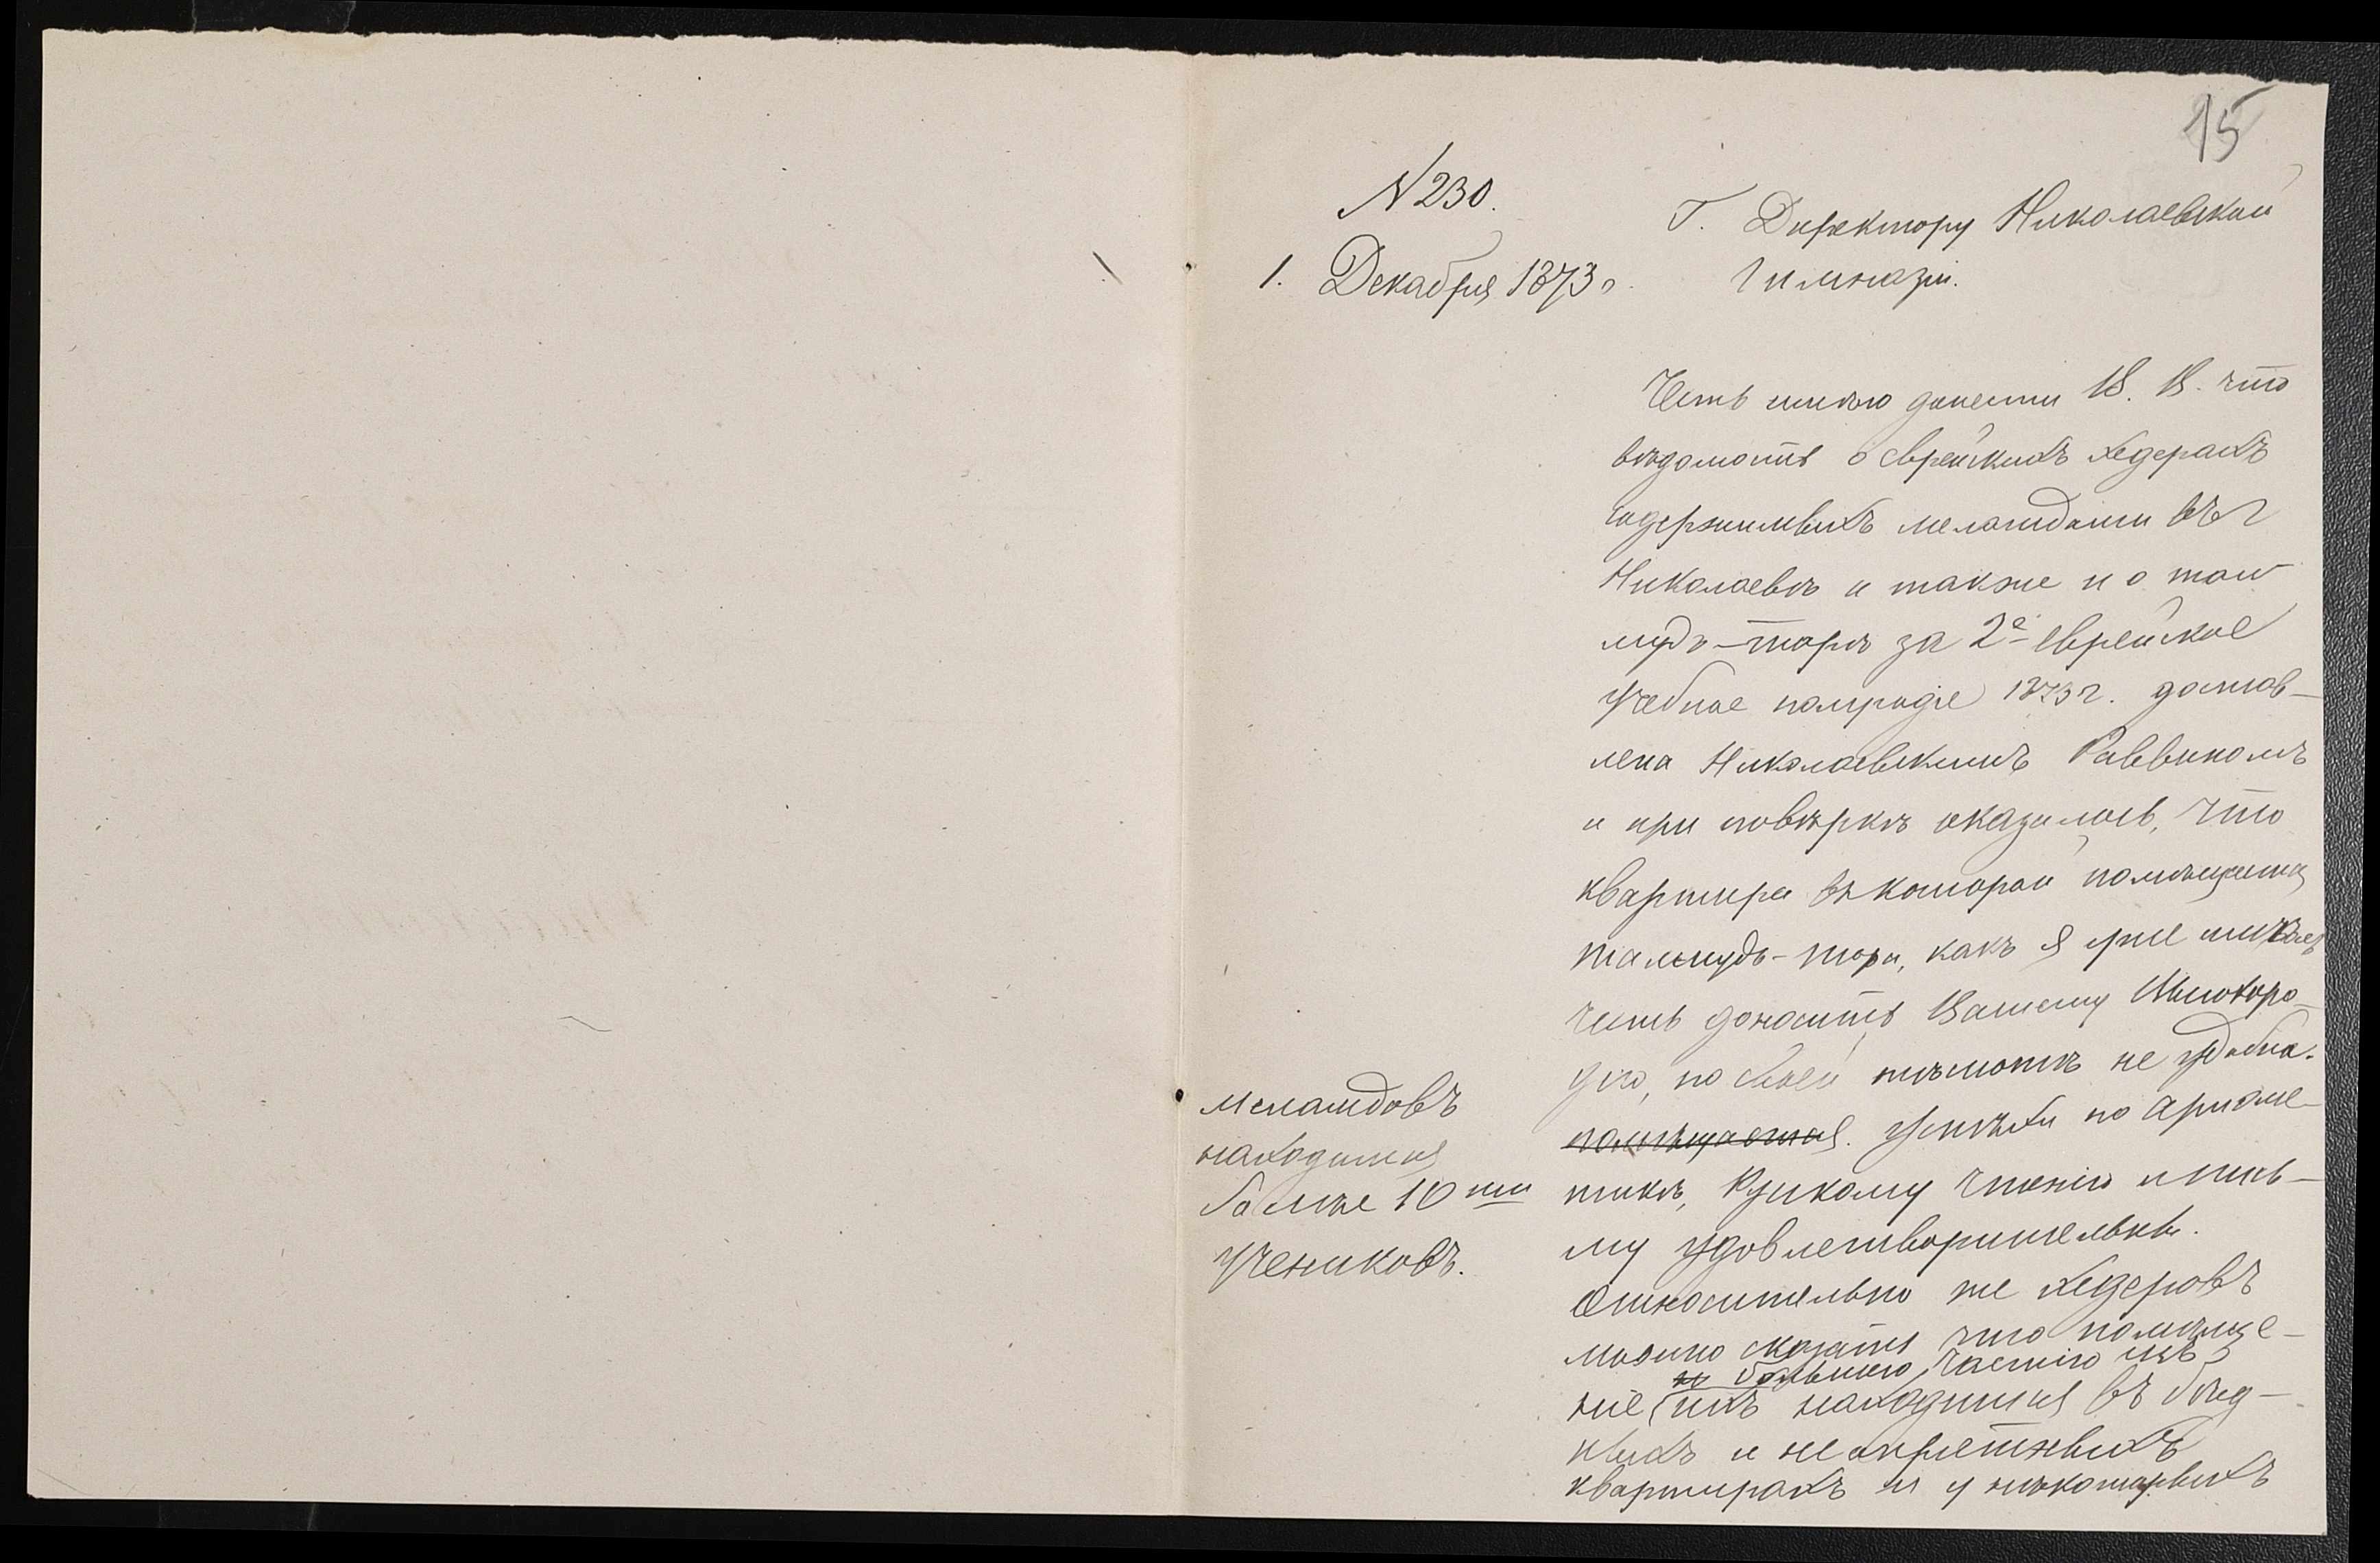 15
N 230.
1. Декабря 1873 г.
Г. Директору Николаевской
Гимназіи.
Честь имѣю донести В. В. что
вѣдомость о еврейскихъ хедерахъ
содержимыхъ меламдами въ г
Николаевѣ и также и о тал-
мудъ-торѣ за 2е еврейское
учебное полугодіе 1873 г. достав-
лена Николаевскимъ Раввиномъ
и при повѣркѣ оказалось, что
квартира въ которой помѣщается
талмудъ-тора, какъ я уже имѣлъ
честь доносить Вашему Высокоро-
дію, по своей тѣсмотѣ не удобна.
помѣщается. Успѣхи по ариѳме-
тикѣ, Рускому чтенію и пись-
му удовлетворительны.
Относительно же хедеровъ
можно сказать что помѣще-
большею частію изъ
ніе ихъ находится въ бѣд-
ныхъ и неопрятныхъ
квартирахъ и у нѣкоторыхъ
меламдовъ
находится
болѣе 10ти
учениковъ.